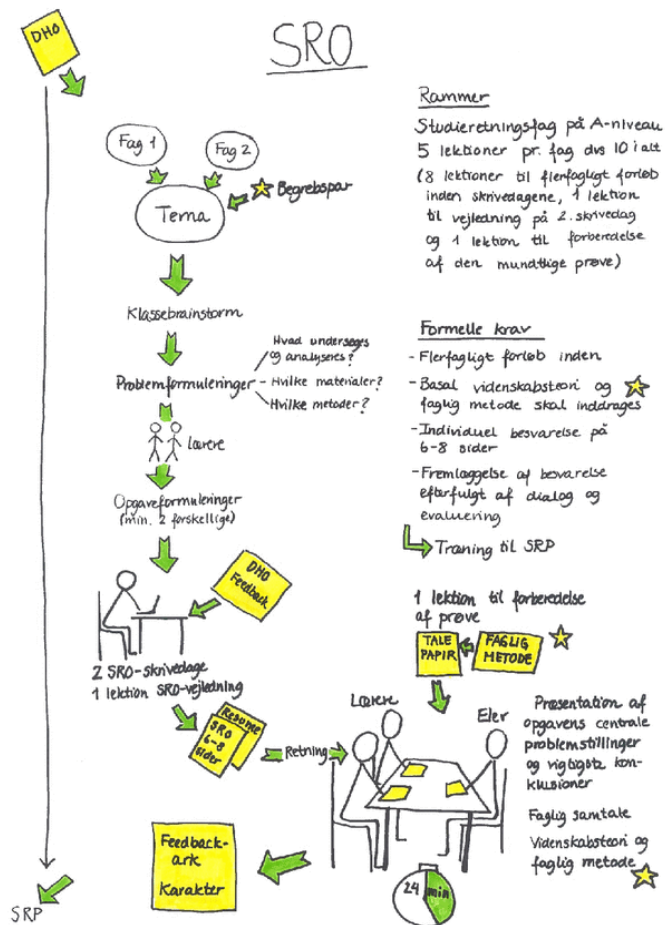 SRO
DHO
Fag 1
Fag 2
Tema
Begrebspar
Klassebrainstorm
Problemformuleringer
Hvad undersøges
og analyseres?
- Hvilke materialer?
Hvilke metoder?
Lærere
Opgaveformuleringer
(min. 2 forskellige)
DHO
Feedback
2 SRO-skrivedage
1 lektion SRO-vejledning
Resume
SRO
6-8
sider
Retning
Rammer
Studieretningsfag på A-niveau
5 lektioner pr. fag dvs 10 i alt
(8 lektioner til flerfagligt forløb
inden skrivedagene, 1 lektion
til vejledning på 2. skrivedag
og 1 lektion til forberedelse
af den mundtlige prøve)
Formelle krav
- Flerfagligt forløb inden
- Basal videnskabsteori og
faglig metode skal inddrages
- Individuel besvarelse på
6-8 sider
- Fremlæggelse af besvarelse
efterfulgt af dialog og
evaluering
Træning til SRP
1 lektion til forberedelse
af prøve
TALE
PAPIR
FAGLIG
METODE
Lærere
Elev
Præsentation af
opgavens centrale
problemstillinger
og vigtigste kon-
klusioner
Faglig samtale
Videnskabsteori og
faglig metode
24 min
Feedback-
ark
Karakter
SRP